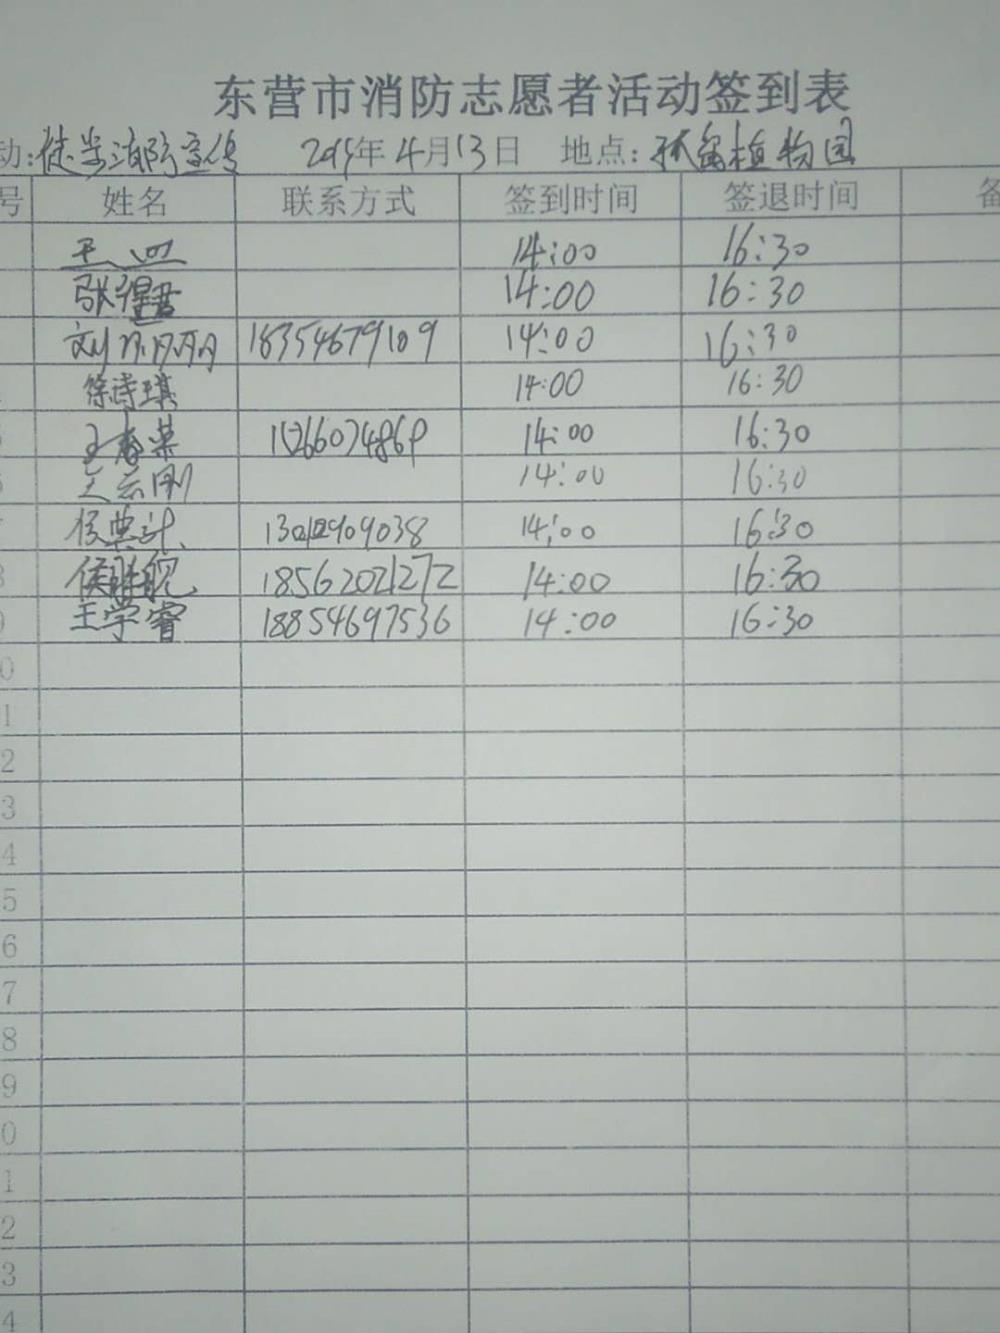 东营市消防志愿者活动签到表
动:徒步消防宣传 2019年4月13日 地点:孤岛植物园
号 姓名 联系方式 签到时间 签退时间 备
14:00 16:30
14:00 16:30
刘 18354679109 14:00 16:30
徐诗琪 14:00 16:30
王春荣 14:00 16:30
14:00 16:30
侯典计 14:00 16:30
侯胜 18562021272 14:00 16:30
王学睿 18854697536 14:00 16:30
0
1
2
3
4
5
6
7
8
9
0
1
2
3
4